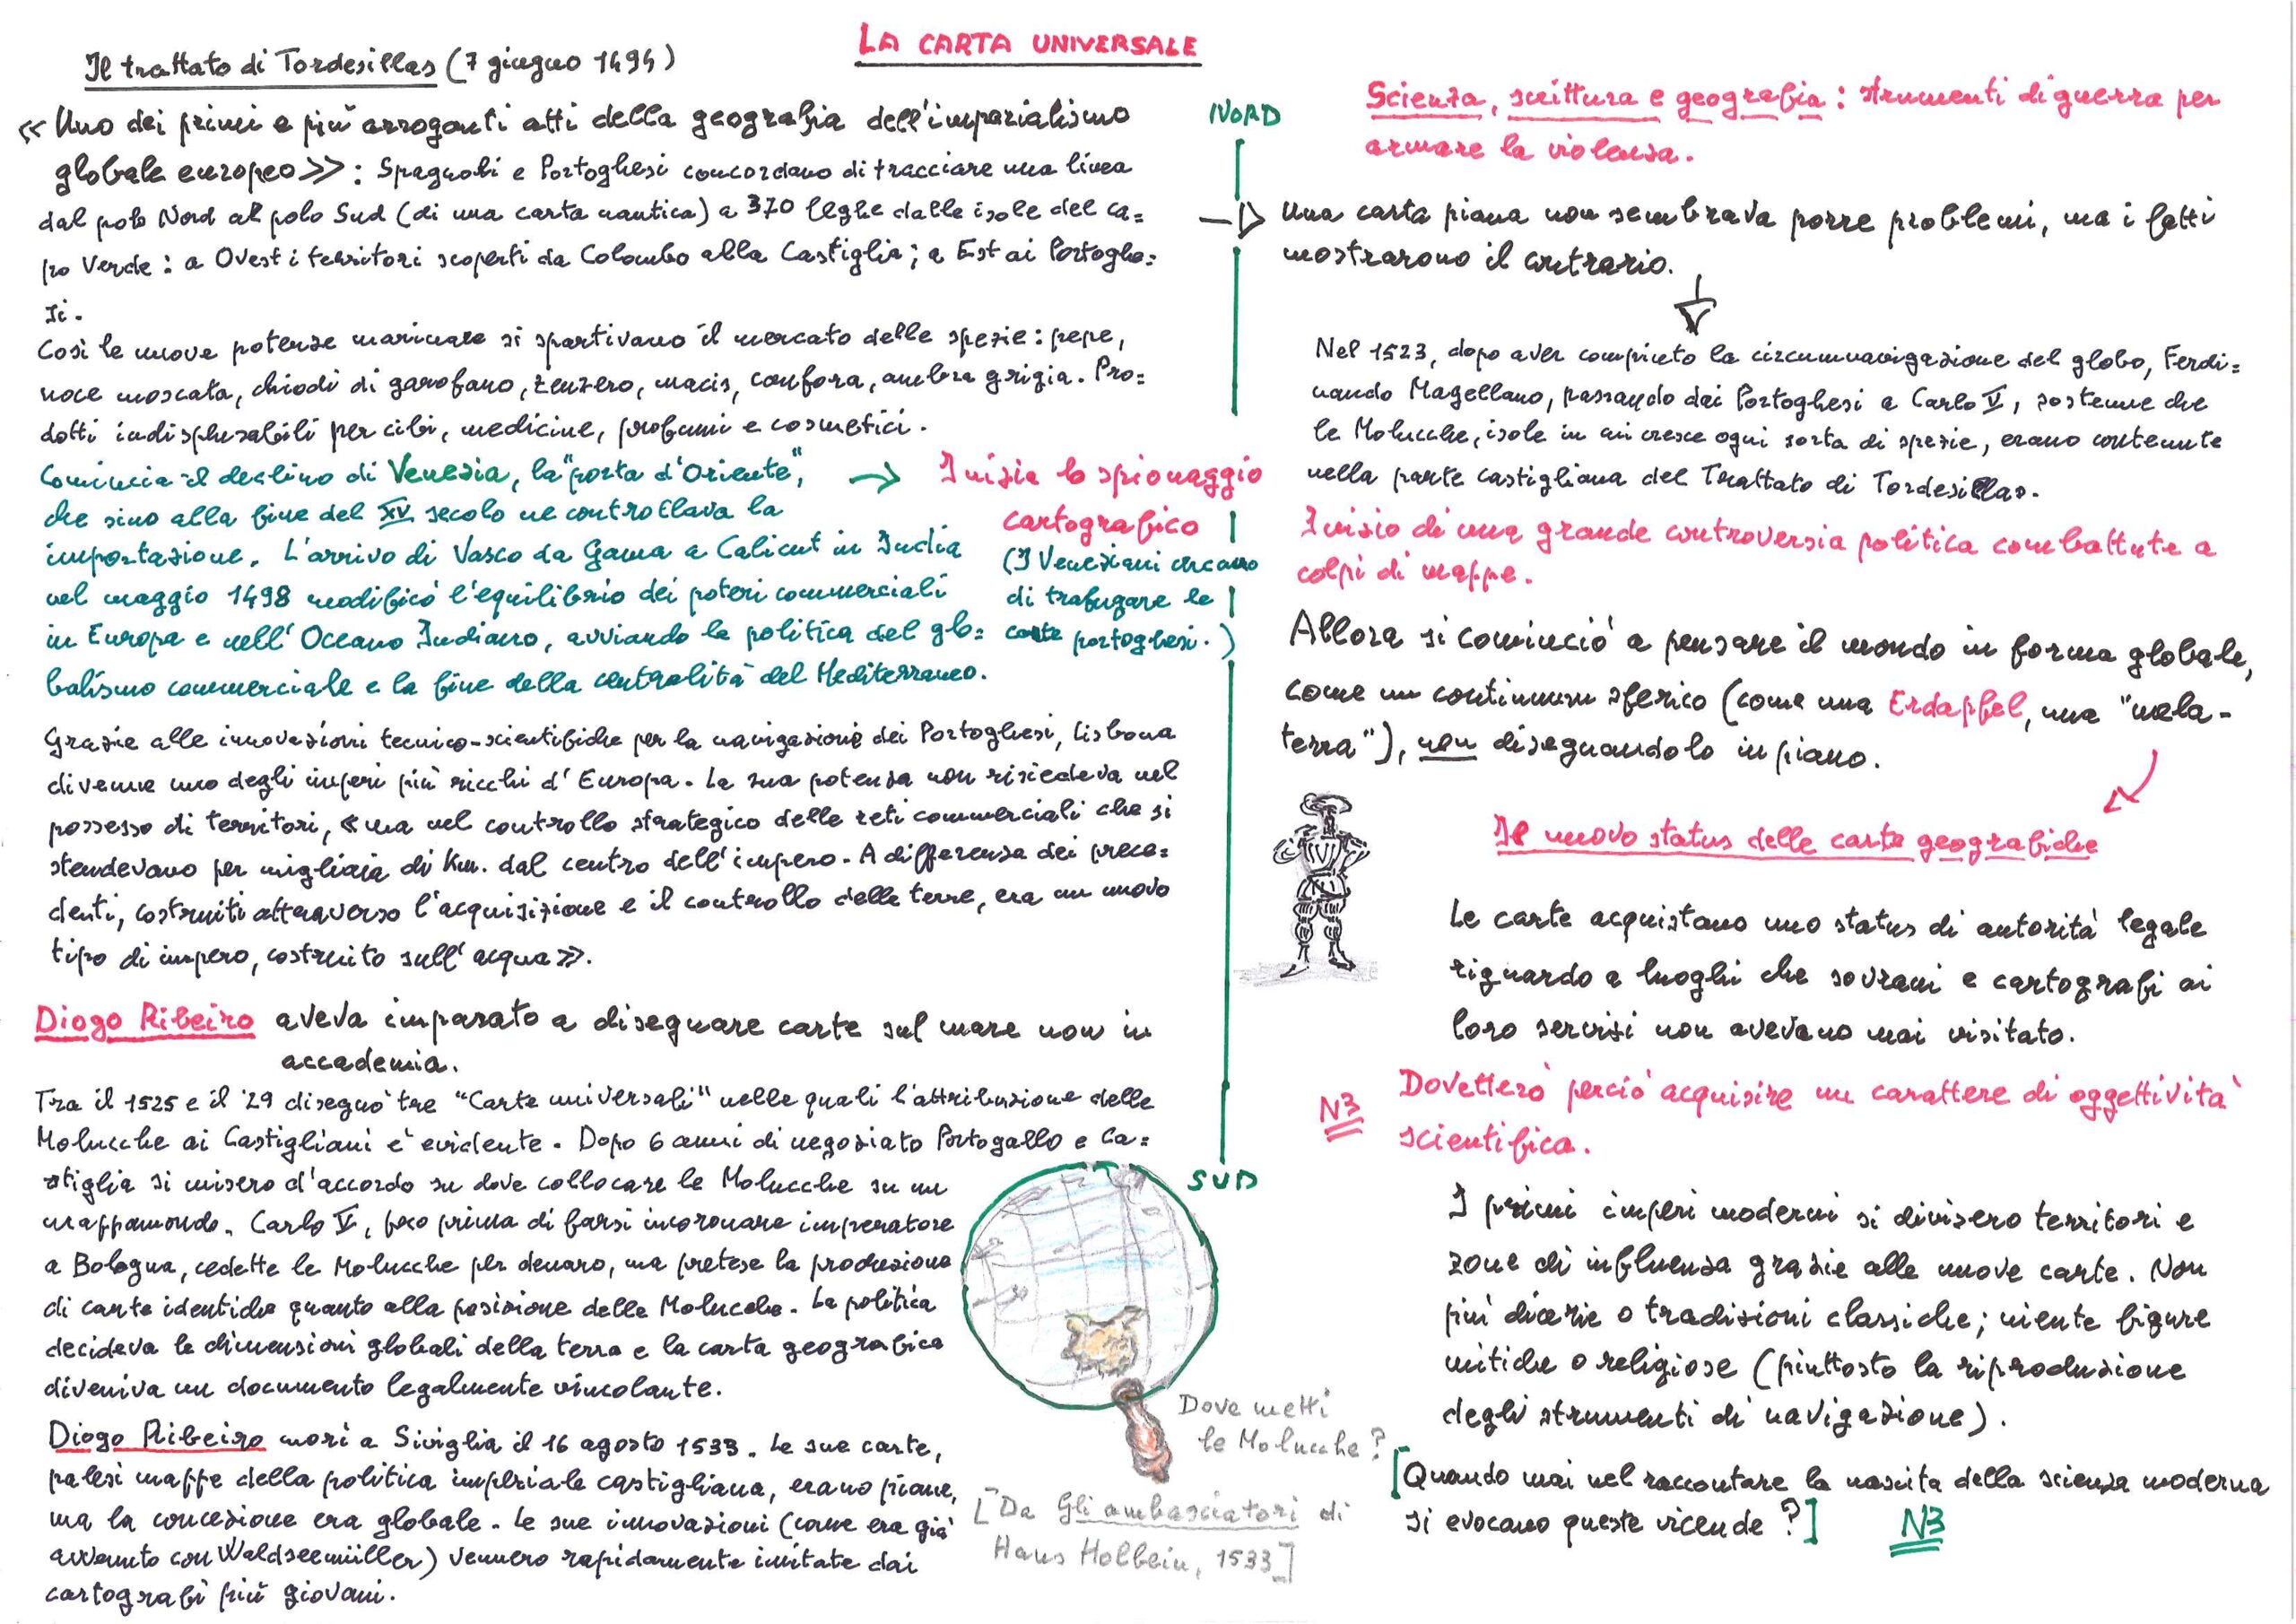 LA CARTA UNIVERSALE
Il trattato di Tordesillas (7 giugno 1494)
« Uno dei primi e più arroganti atti della geografia dell'imperialismo
globale europeo»: Spagnoli e Portoghesi concordano di tracciare una linea
dal polo Nord al polo Sud (di una carta nautica) a 370 leghe dalle isole del ca=
po Verde: a Ovest i territori scoperti da Colombo alla Castiglia; a Est ai Portoghe=
si.
Così le nuove potenze marinare si spartivano il mercato delle spezie: pepe,
noce moscata, chiodi di garofano, zenzero, macis, canfora, ambra grigia. Pro=
dotti indispensabili per cibi, medicine, profumi e cosmetici.
Comincia il declino di Venezia, la "porta d'Oriente",
che sino alla fine del XV secolo ne controllava la
importazione. L'arrivo di Vasco da Gama a Calicut in India
nel maggio 1498 modificò l'equilibrio dei poteri commerciali
in Europa e nell'Oceano Indiano, avviando la politica del glo=
balismo commerciale e la fine della centralità del Mediterraneo.
→ Inizia lo spionaggio
cartografico
(I Veneziani cercano
di trafugare le
carte portoghesi.)
Grazie alle innovazioni tecnico-scientifiche per la navigazione dei Portoghesi, Lisbona
divenne uno degli imperi più ricchi d'Europa. La sua potenza non risiedeva nel
possesso di territori, « ma nel controllo strategico delle reti commerciali che si
stendevano per migliaia di Km. dal centro dell'impero. A differenza dei prece=
denti, costruiti attraverso l'acquisizione e il controllo delle terre, era un nuovo
tipo di impero, costruito sull'acqua».
Diogo Ribeiro aveva imparato a disegnare carte sul mare non in
accademia.
Tra il 1525 e il '29 disegnò tre "Carte universali" nelle quali l'attribuzione delle
Molucche ai Castigliani è evidente. Dopo 6 anni di negoziato Portogallo e Ca=
stiglia si misero d'accordo su dove collocare le Molucche su un
mappamondo. Carlo V, poco prima di farsi incoronare imperatore
a Bologna, cedette le Molucche per denaro, ma pretese la produzione
di carte identiche quanto alla posizione delle Molucche. La politica
decideva le dimensioni globali della terra e la carta geografica
diveniva un documento legalmente vincolante.
Diogo Ribeiro morì a Siviglia il 16 agosto 1533. Le sue carte,
palesi mappe della politica imperiale castigliana, erano piane,
ma la concezione era globale. Le sue innovazioni (come era già
avvenuto con Waldseemüller) vennero rapidamente imitate dai
cartografi più giovani.
NORD
SUD
Dove metti
le Molucche?
[Da Gli ambasciatori di
Hans Holbein, 1533]
Scienza, scrittura e geografia: strumenti di guerra per
armare la violenza.
Una carta piana non sembrava porre problemi, ma i fatti
mostrarono il contrario.
Nel 1523, dopo aver compiuto la circumnavigazione del globo, Ferdi=
nando Magellano, passando dai Portoghesi a Carlo V, sostenne che
le Molucche, isole in cui cresce ogni sorta di spezie, erano contenute
nella parte castigliana del Trattato di Tordesillas.
Inizio di una grande controversia politica combattute a
colpi di mappe.
Allora si cominciò a pensare il mondo in forma globale,
come un continuum sferico (come una Erdapfel, una "mela-
terra"), non disegnandolo in piano.
Il nuovo status delle carte geografiche
Le carte acquistano uno status di autorità legale
riguardo a luoghi che sovrani e cartografi ai
loro servizi non avevano mai visitato.
NB
Dovettero perciò acquisire un carattere di oggettività
scientifica.
I primi imperi moderni si divisero territori e
zone di influenza grazie alle nuove carte. Non
più dicerie o tradizioni classiche; niente figure
mitiche o religiose (piuttosto la riproduzione
degli strumenti di navigazione).
[Quando mai nel raccontare la nascita della scienza moderna
si evocano queste vicende?] NB